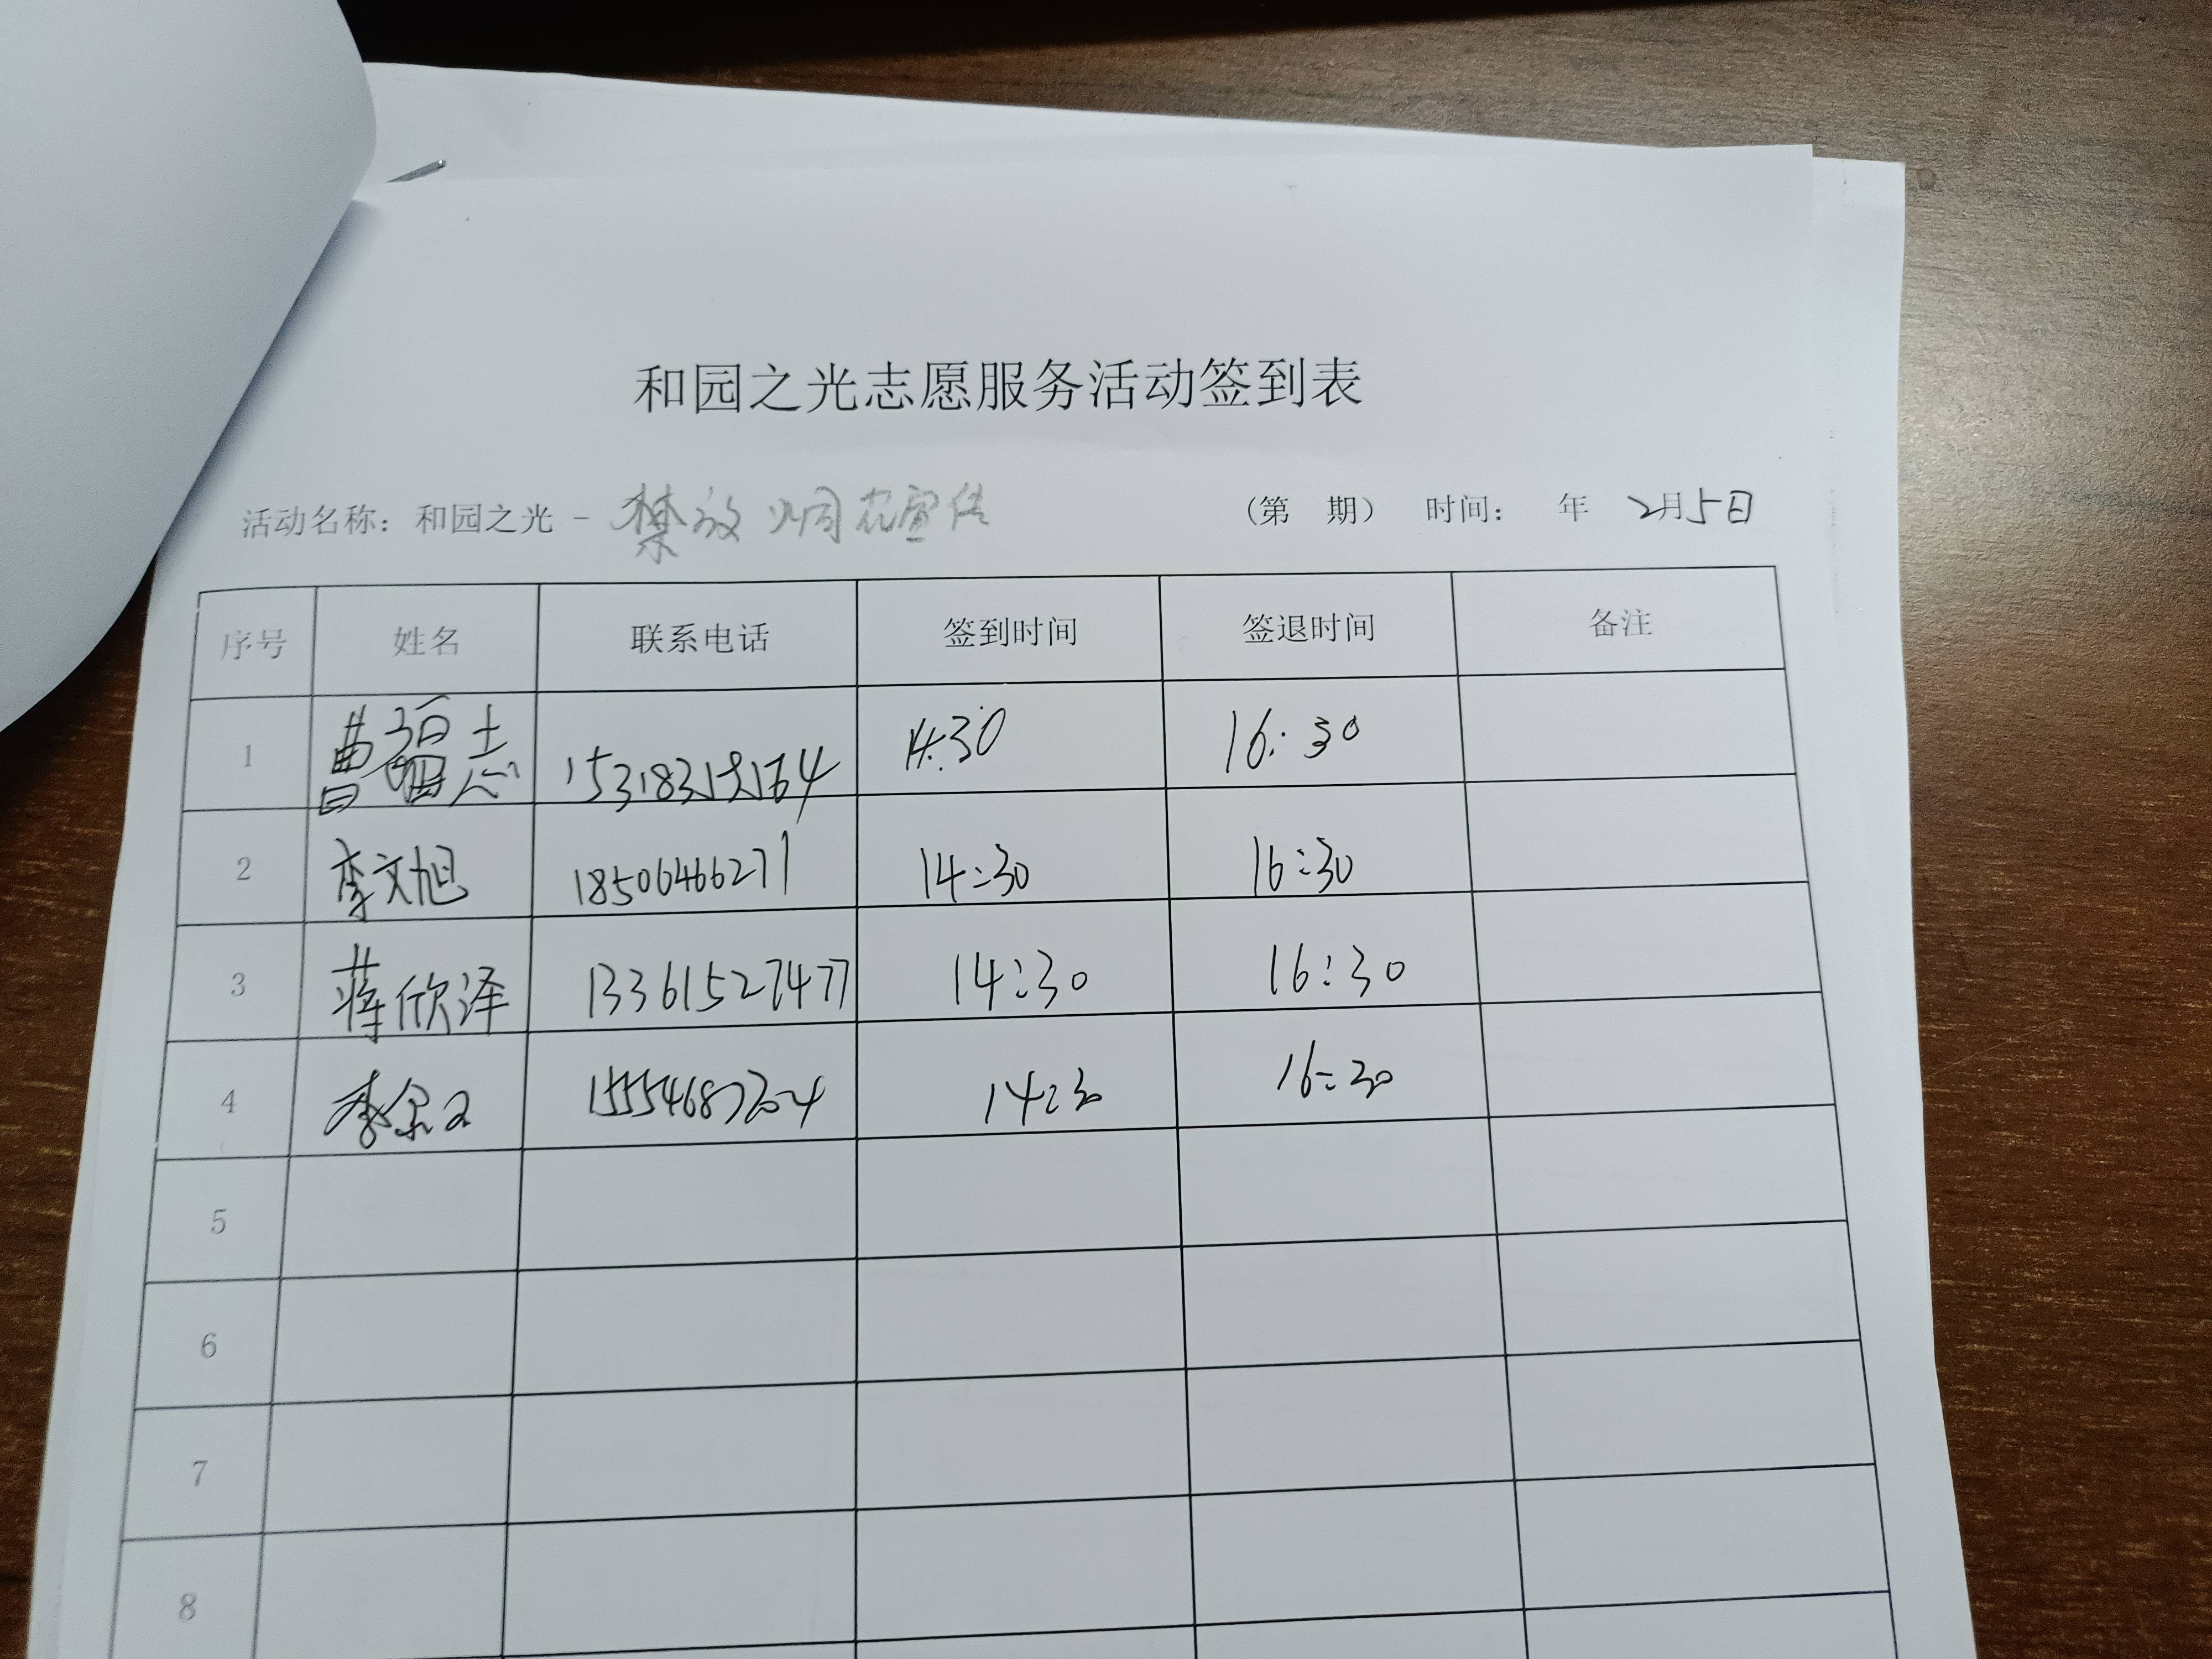 和园之光志愿服务活动签到表
活动名称：和园之光 - 禁放烟花宣传 (第 期) 时间： 年 2月5日
序号 姓名 联系电话 签到时间 签退时间 备注
1 曹福志 14:30 16:30
2 李文旭 18506466271 14:30 16:30
3 蒋欣泽 13361527477 14:30 16:30
4 14:30 16:30
5
6
7
8